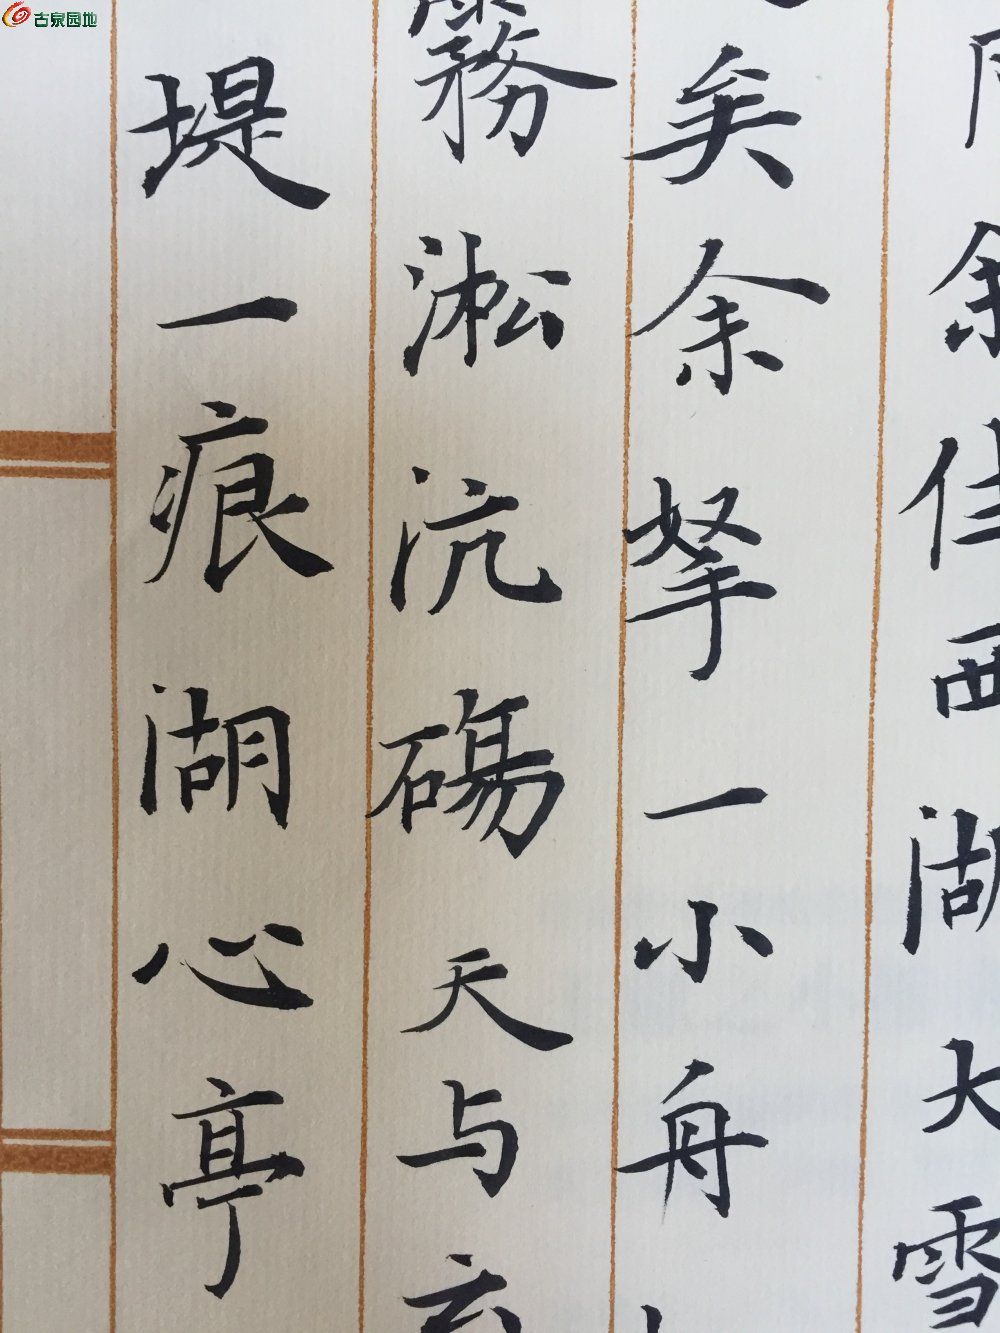 古泉园地
余住西湖大雪
矣余拏一小舟
霧淞沆碭天与云
堤一痕湖心亭